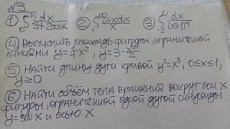 №3
① ∫₀^π dx/(3+2cosx) ② ∫ dx ③ ∫ dx
④ Вычислить площадь фигуры, ограниченной
линиями y=x², y=3-x²
⑤ Найти длину дуги кривой y²=x³, 0≤x≤1,
y≥0
⑥ Найти объём тела вращения вокруг оси X
фигуры, ограниченной одной дугой синусоиды
y=sinX и осью X